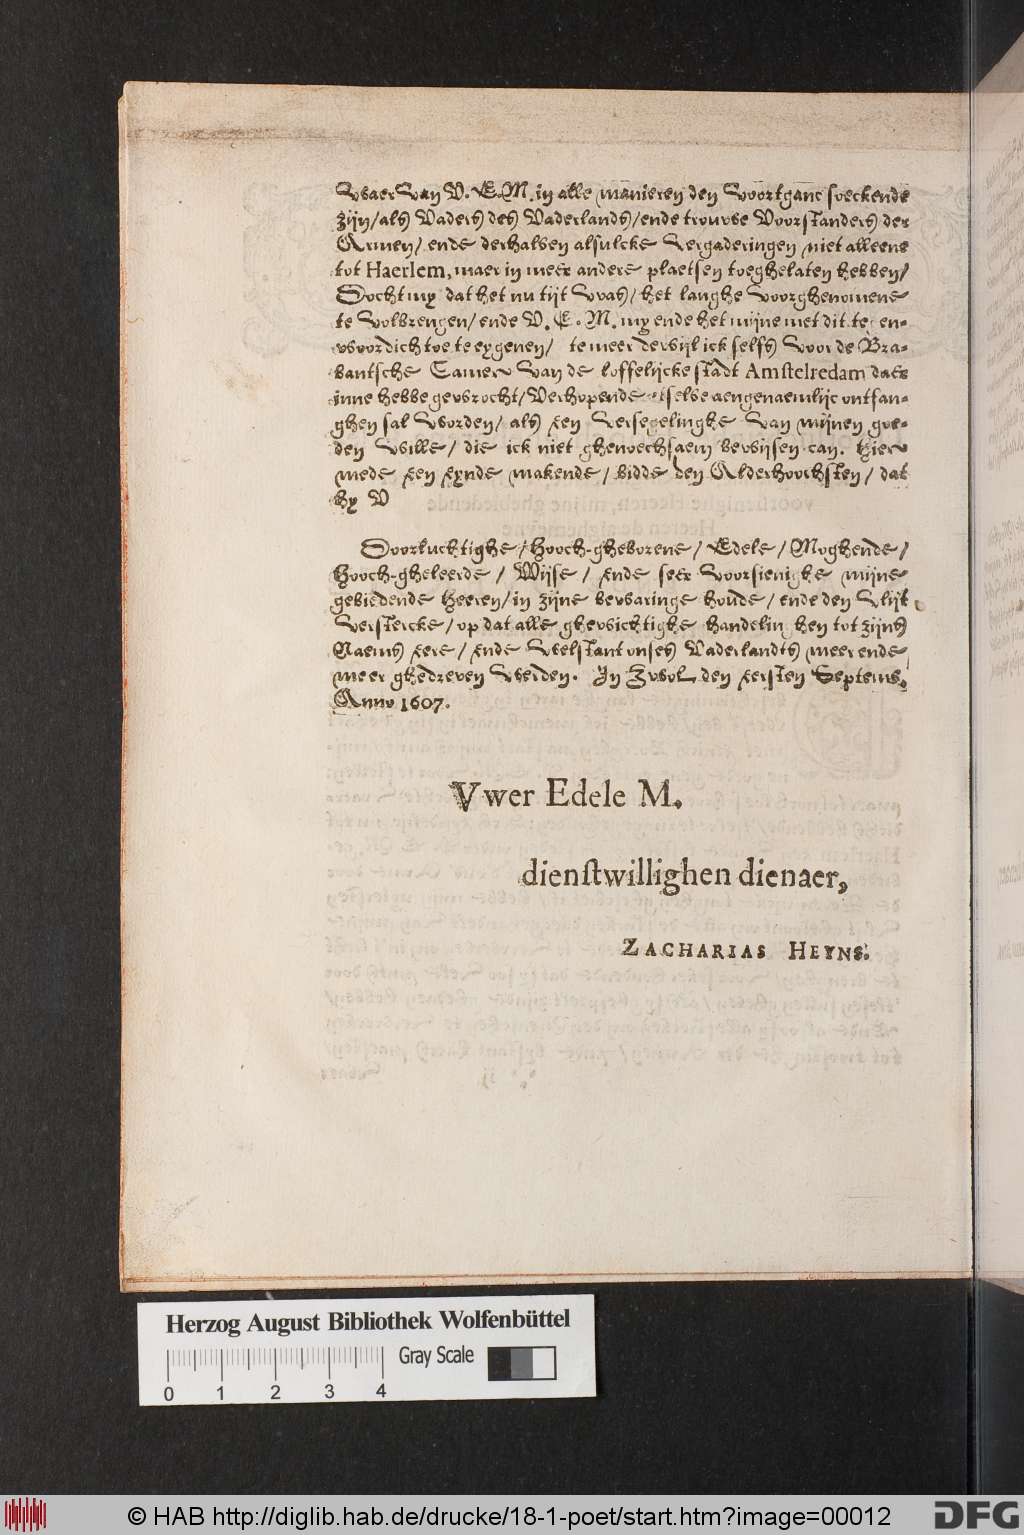 Vvaer van V. E. M. in alle manieren den voortganc soeckende
zijn/als Vaders des Vaderlands/ende trouvve Voorstanders der
Armen/ ende derhalven alsulcke vergaderingen niet alleene
tot Haerlem, maer in meer andere plaetsen toeghelaten hebben/
Docht my dat het nu tijt vvas/ het langhe voorghenomene
te volbrengen/ende V. E. M. my ende het mijne met dit te en-
vvoordich toe te eygenen/ te meer dervvijl ick selfs voor de Bra-
bantsche Camer van de loffelijcke stadt Amstelredam daer
inne hebbe gevvrocht/ Verhopende tselve aengenaemlijc ontfan-
ghen sal vvorden/ als een versegelinghe van mijnen goe-
den vville/ die ick niet ghenoechsaem bevvijsen can. Hier
mede een eynde makende/ bidde den Alderhoochsten/ dat
hy V
Doorluchtighe/ Hooch-gheborene/ Edele/ Moghende/
Hooch-gheleerde/ Wijse/ ende seer voorsienighe mijne
gebiedende Heeren/in zijne bevvaringe houde/ ende den vlijt
verstercke/ op dat alle ghevvichtighe handelin hen tot zijns
Naems eere/ ende vvelstant onses Vaderlandts meer ende
meer ghedreven vverden. In Zvvol den eersten Septemb.
Anno 1607.
Vwer Edele M.
dienstwillighen dienaer,
ZACHARIAS HEYNS.
Herzog August Bibliothek Wolfenbüttel
Gray Scale
0 1 2 3 4
© HAB http://diglib.hab.de/drucke/18-1-poet/start.htm?image=00012
DFG